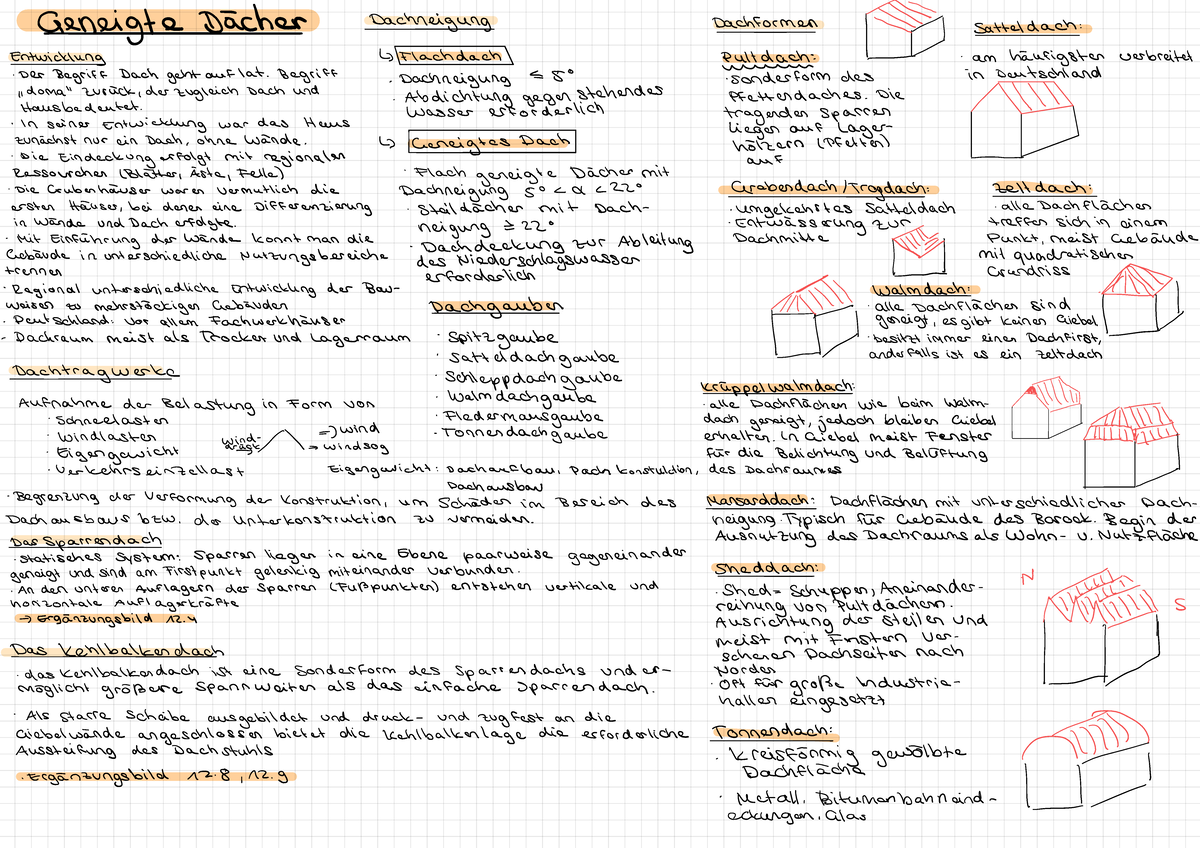 Geneigte Dächer
Entwicklung
· Der Begriff Dach geht auf lat. Begriff
„doma" zurück, der zugleich Dach und
Haus bedeutet.
· In seiner Entwicklung war das Haus
zunächst nur ein Dach, ohne Wände.
· Die Eindeckung erfolgt mit regionalen
Ressourchen (Blätter, Äste, Felle)
· Die Grubenhäuser waren vermutlich die
ersten Häuser, bei denen eine Differenzierung
in Wände und Dach erfolgte.
· Mit Einführung der Wände konnt man die
Gebäude in unterschiedliche Nutzungsbereiche
trennen
· Regional unterschiedliche Entwicklung der Bau-
weisen zu mehrstöckigen Gebäuden
· Deutschland: vor allem Fachwerkhäuser
- Dachraum meist als Trocken und Lagerraum
Dachtragwerke
Aufnahme der Belastung in Form von
· Schneelasten
· Windlasten
· Eigengewicht
· Verkehrseinzellast
wind-
druck
=> wind
=> windsog
Eigengewicht: Dachaufbau, Dach konstuktion,
Dachausbau
· Begrenzung der Verformung der Konstruktion, um Schäden im Bereich des
Dachausbaus bzw. der Unterkonstruktion zu vermeiden.
Das Sparrendach
· statisches System: Sparren liegen in eine Ebene paarweise gegeneinander
geneigt und sind am Firstpunkt gelenkig miteinander verbunden.
· An den unteren Auflagern der Sparren (Fußpunkten) entstehen vertikale und
horizontale Auflagerkräfte
→ Ergänzungsbild 12.4
Das Kehlbalkendach
· das Kehlbalkendach ist eine Sonderform des Sparrendachs und er-
möglicht größere Spannweiten als das einfache Sparrendach.
· Als starre Scheibe ausgebildet und druck- und zugfest an die
Giebelwände angeschlossen bietet die Kehlbalkenlage die erforderliche
Aussteifung des Dachstuhls
· Ergänzungsbild 12.8, 12.9
Dachneigung
↳ Flachdach
· Dachneigung ≤ 5°
· Abdichtung gegen stehendes
Wasser erforderlich
↳ Geneigtes Dach
· Flach geneigte Dächer mit
Dachneigung 5° < α < 22°
· Steildächer mit Dach-
neigung ≥ 22°
· Dachdeckung zur Ableitung
des Niederschlagswasser
erforderlich
Dachgauben
· Spitzgaube
· Satteldachgaube
· Schleppdachgaube
· Walmdachgaube
· Fledermausgaube
· Tonnendachgaube
Dachformen
Pultdach:
· Sonderform des
Pfettendaches. Die
tragenden Sparren
liegen auf Lager-
hölzern (Pfetten)
auf
Satteldach:
· am häufigsten verbreitet
in Deutschland
Grabendach/Trogdach:
· umgekehrtes Satteldach
· Entwässerung zur
Dachmitte
Zeltdach:
· alle Dachflächen
treffen sich in einem
Punkt, meist Gebäude
mit quadratischen
Grundriss
Walmdach:
· alle Dachflächen sind
geneigt, es gibt keinen Giebel
· besitzt immer einen Dachfirst,
anderfalls ist es ein Zeltdach
Krüppelwalmdach:
· alle Dachflächen wie beim Walm-
dach geneigt, jedoch bleiben Giebel
erhalten. In Giebel meist Fenster
für die Belichtung und Belüftung
des Dachraumes
Mansarddach: Dachflächen mit unterschiedlicher Dach-
neigung. Typisch für Gebäude des Barock. Begin der
Ausnutzung des Dachraums als Wohn- u. Nutzfläche
Sheddach:
· Shed = Schuppen, Aneinander-
reihung von Pultdächern.
Ausrichtung der steilen und
meist mit Fnstern ver-
sehenen Dachseiten nach
Norden
· Oft für große Industrie-
hallen eingesetzt
N
S
Tonnendach:
· kreisförmig gewölbte
Dachfläche
· Metall, Bitumenbahneind-
eckungen, Glas